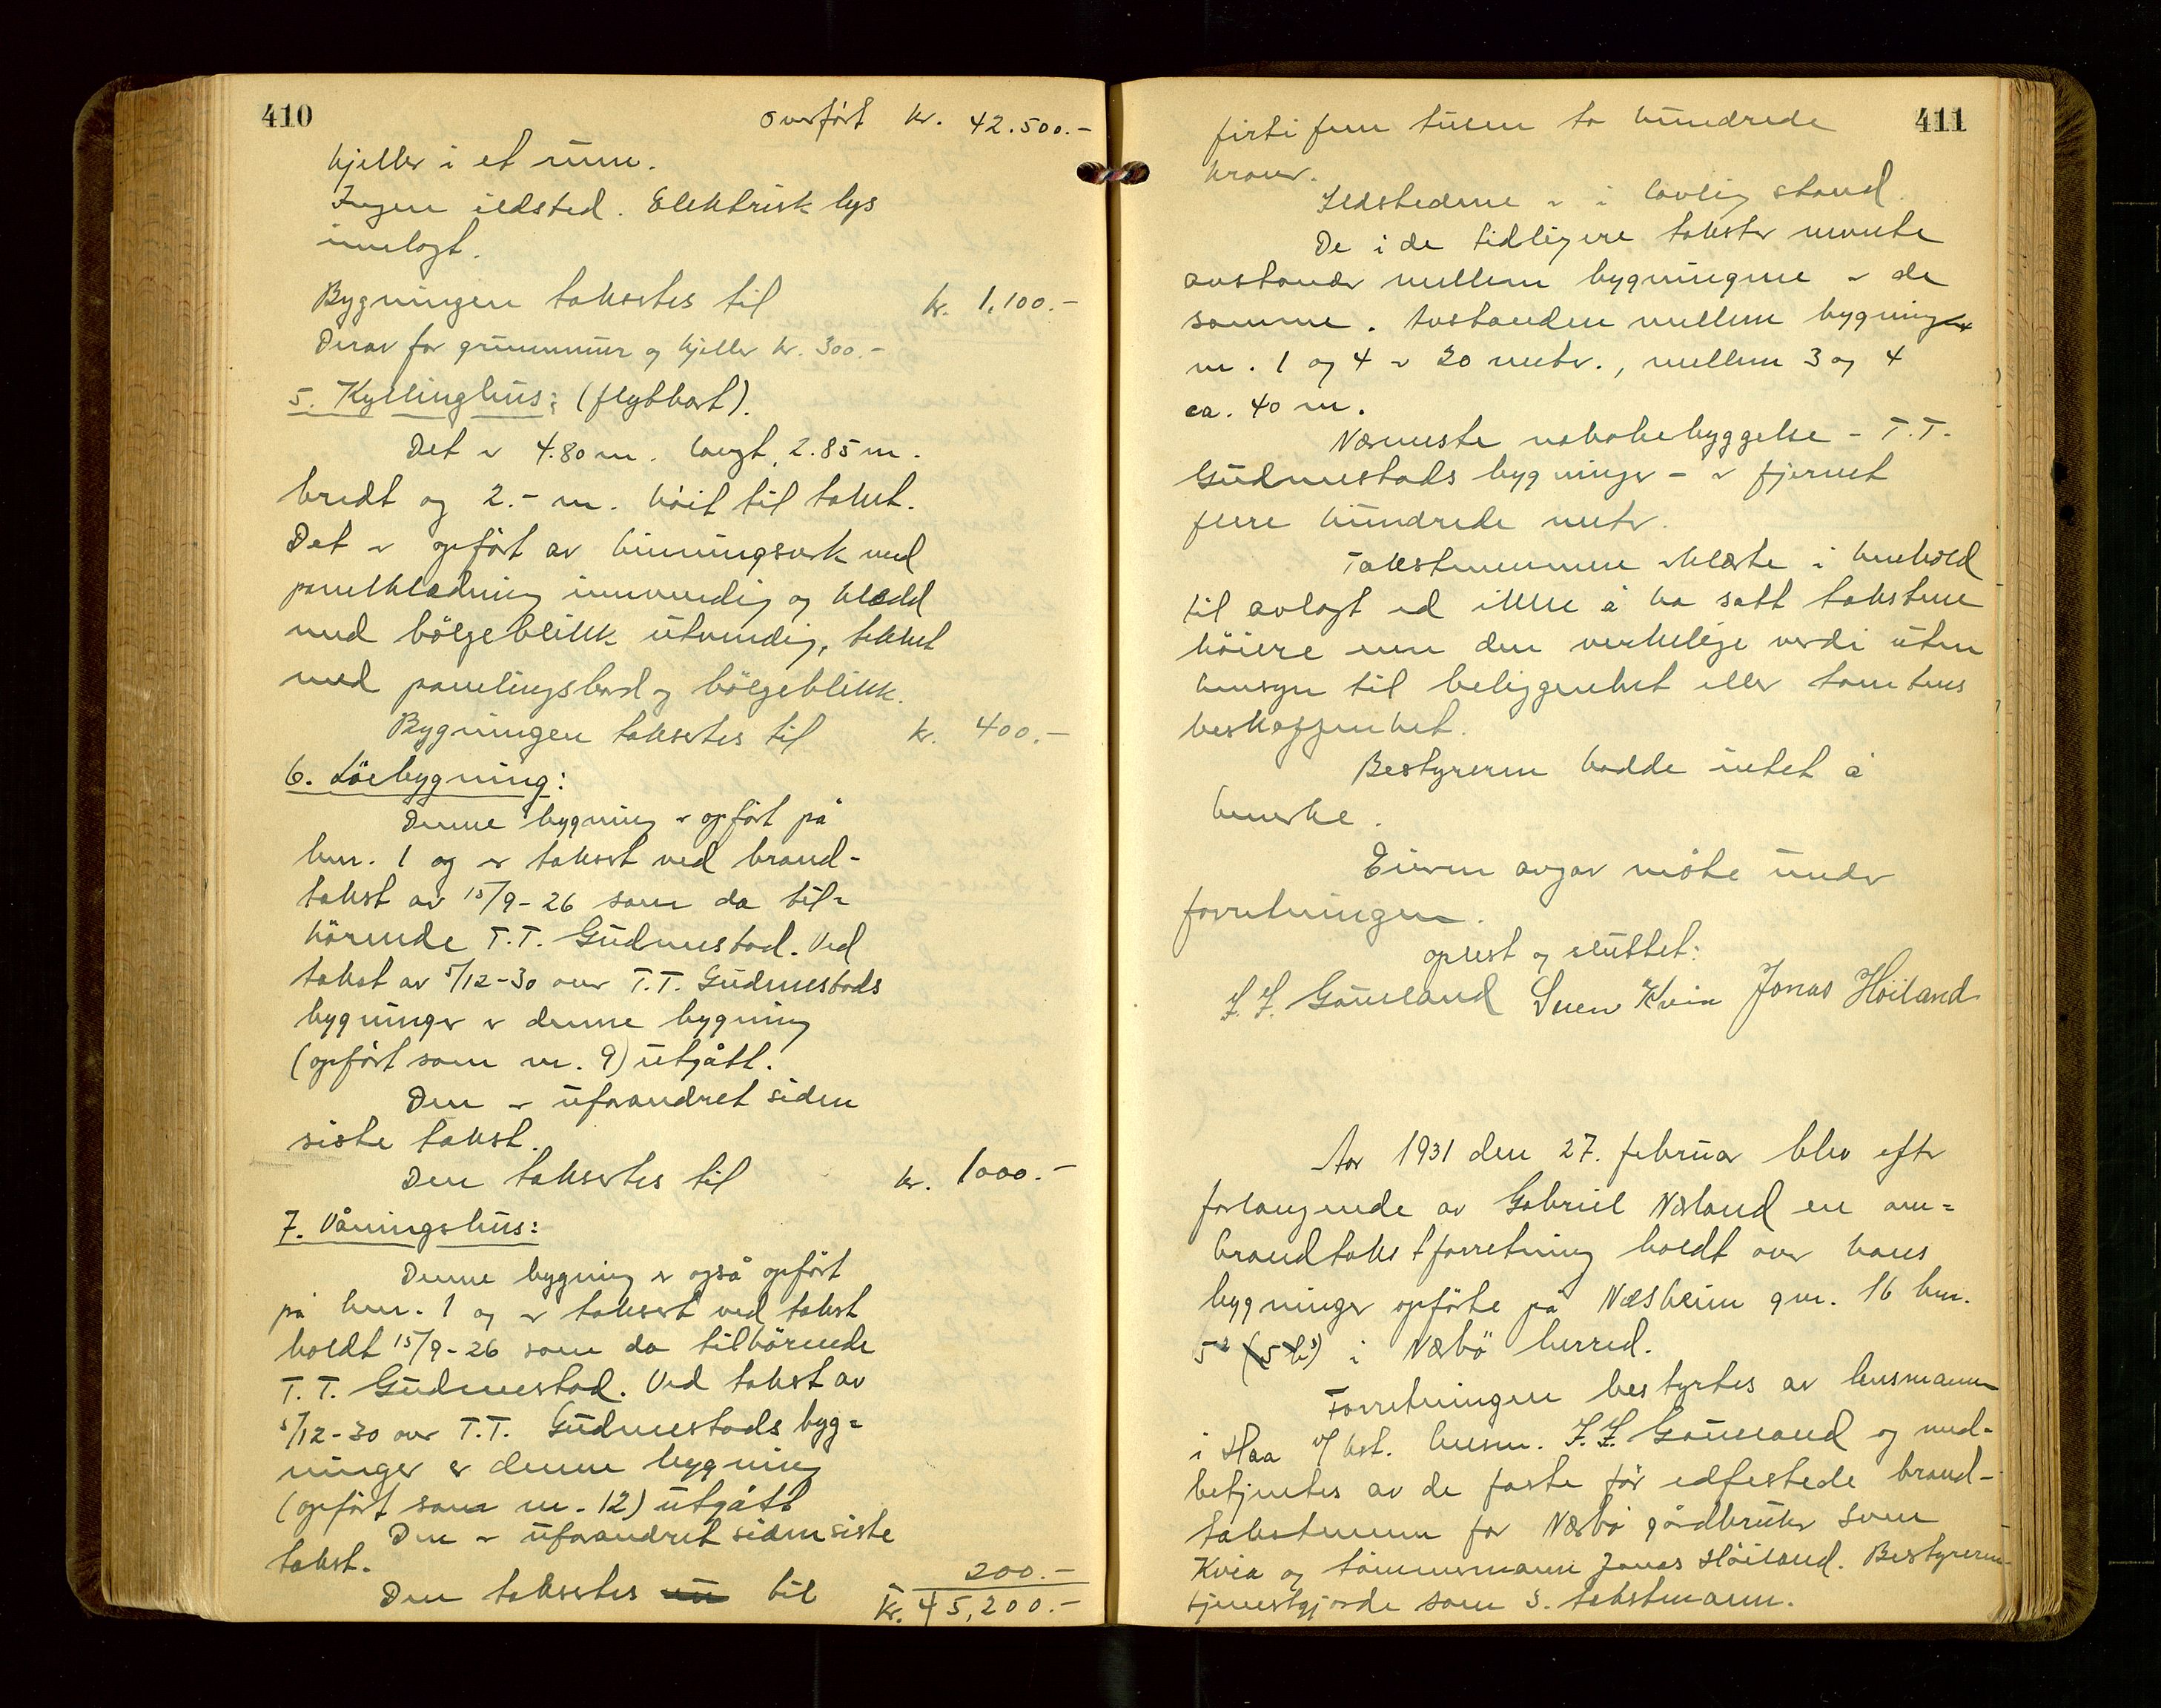 410
Overført kr. 42.500.-
kjeller i et rum.
Ingen ildsted. Elektrisk lys
innlagt.
Bygningen takseres til kr. 1,100.-
Derav for grunnmur og kjeller kr. 300.-
5. Kyllinghus: (flyttbart).
Det er 4.80 m. langt, 2.85 m.
bredt og 2.- m. höit til taket.
Det er opfört av binningsverk med
panelklædning innvendig og klædd
med bölgeblikk utvendig, tekket
med panelingsbord og bölgeblikk.
Bygningen takseres til kr. 400.-
6. Löebygning:
Denne bygning er opfört på
bnr. 1 og er taksert ved brand-
takst av 15/9-26 som da til=
hörende T.T. Gudmestad. Ved
takst av 5/12-30 over T.T. Gudmestads
bygninger er denne bygning
(opfört som nr. 9) utgått.
Den er uforandret siden
siste takst.
Den takseres til kr. 1000.-
7. Våningshus:
Denne bygning er også opfört
på bnr. 1 og er taksert ved takst
holdt 15/9-26 som da tilhörende
T.T. Gudmestad. Ved takst av
5/12-30 over T.T. Gudmestads byg=
ninger er denne bygning
(opfört som nr. 12) utgått
Den er uforandret siden siste
takst.
Den takseres til 200.-
kr. 45,200.-
411
firti fem tusen to hundrede
kroner.
Ildstedene er i lovlig stand.
De i de tidligere takster nevnte
avstander mellem bygningene er de
samme. Avstanden mellem bygning
nr. 1 og 4 er 20 meter., mellem 3 og 4
ca. 40 m.
Nærmeste nabobebyggelse - T.T.
Gudmestads bygninger - er fjernet
flere hundrede meter.
Takstmennene erklærte i henhold
til avlagt ed ikke å ha satt takstene
höiere enn den verkelige verdi uten
hensyn til beliggenhet eller tomtens
beskaffenhet.
Bestyreren hadde intet å
bemerke.
Eieren avgav möte under
forretningen.
oplest og sluttet:
J. J. Gausland Sven Kvia Jonas Höiland
Aar 1931 den 27. februar blev efter
forlangende av Gabriel Nærland en om=
brandtakstforretning holdt over hans
bygninger opförte på Næsheim gnr. 16 bnr.
5² i Nærbö herred.
Forretningen bestyrtes av lensmannen
i Haa v/ bst. lensm. J. J. Gausland og med-
betjentes av de faste för edfestede brand-
takstmenn for Nærbö gårdbruker Sven
Kvia og tömmermann Jonas Höiland. Bestyreren
tjenestgjorde som 3. takstmann.